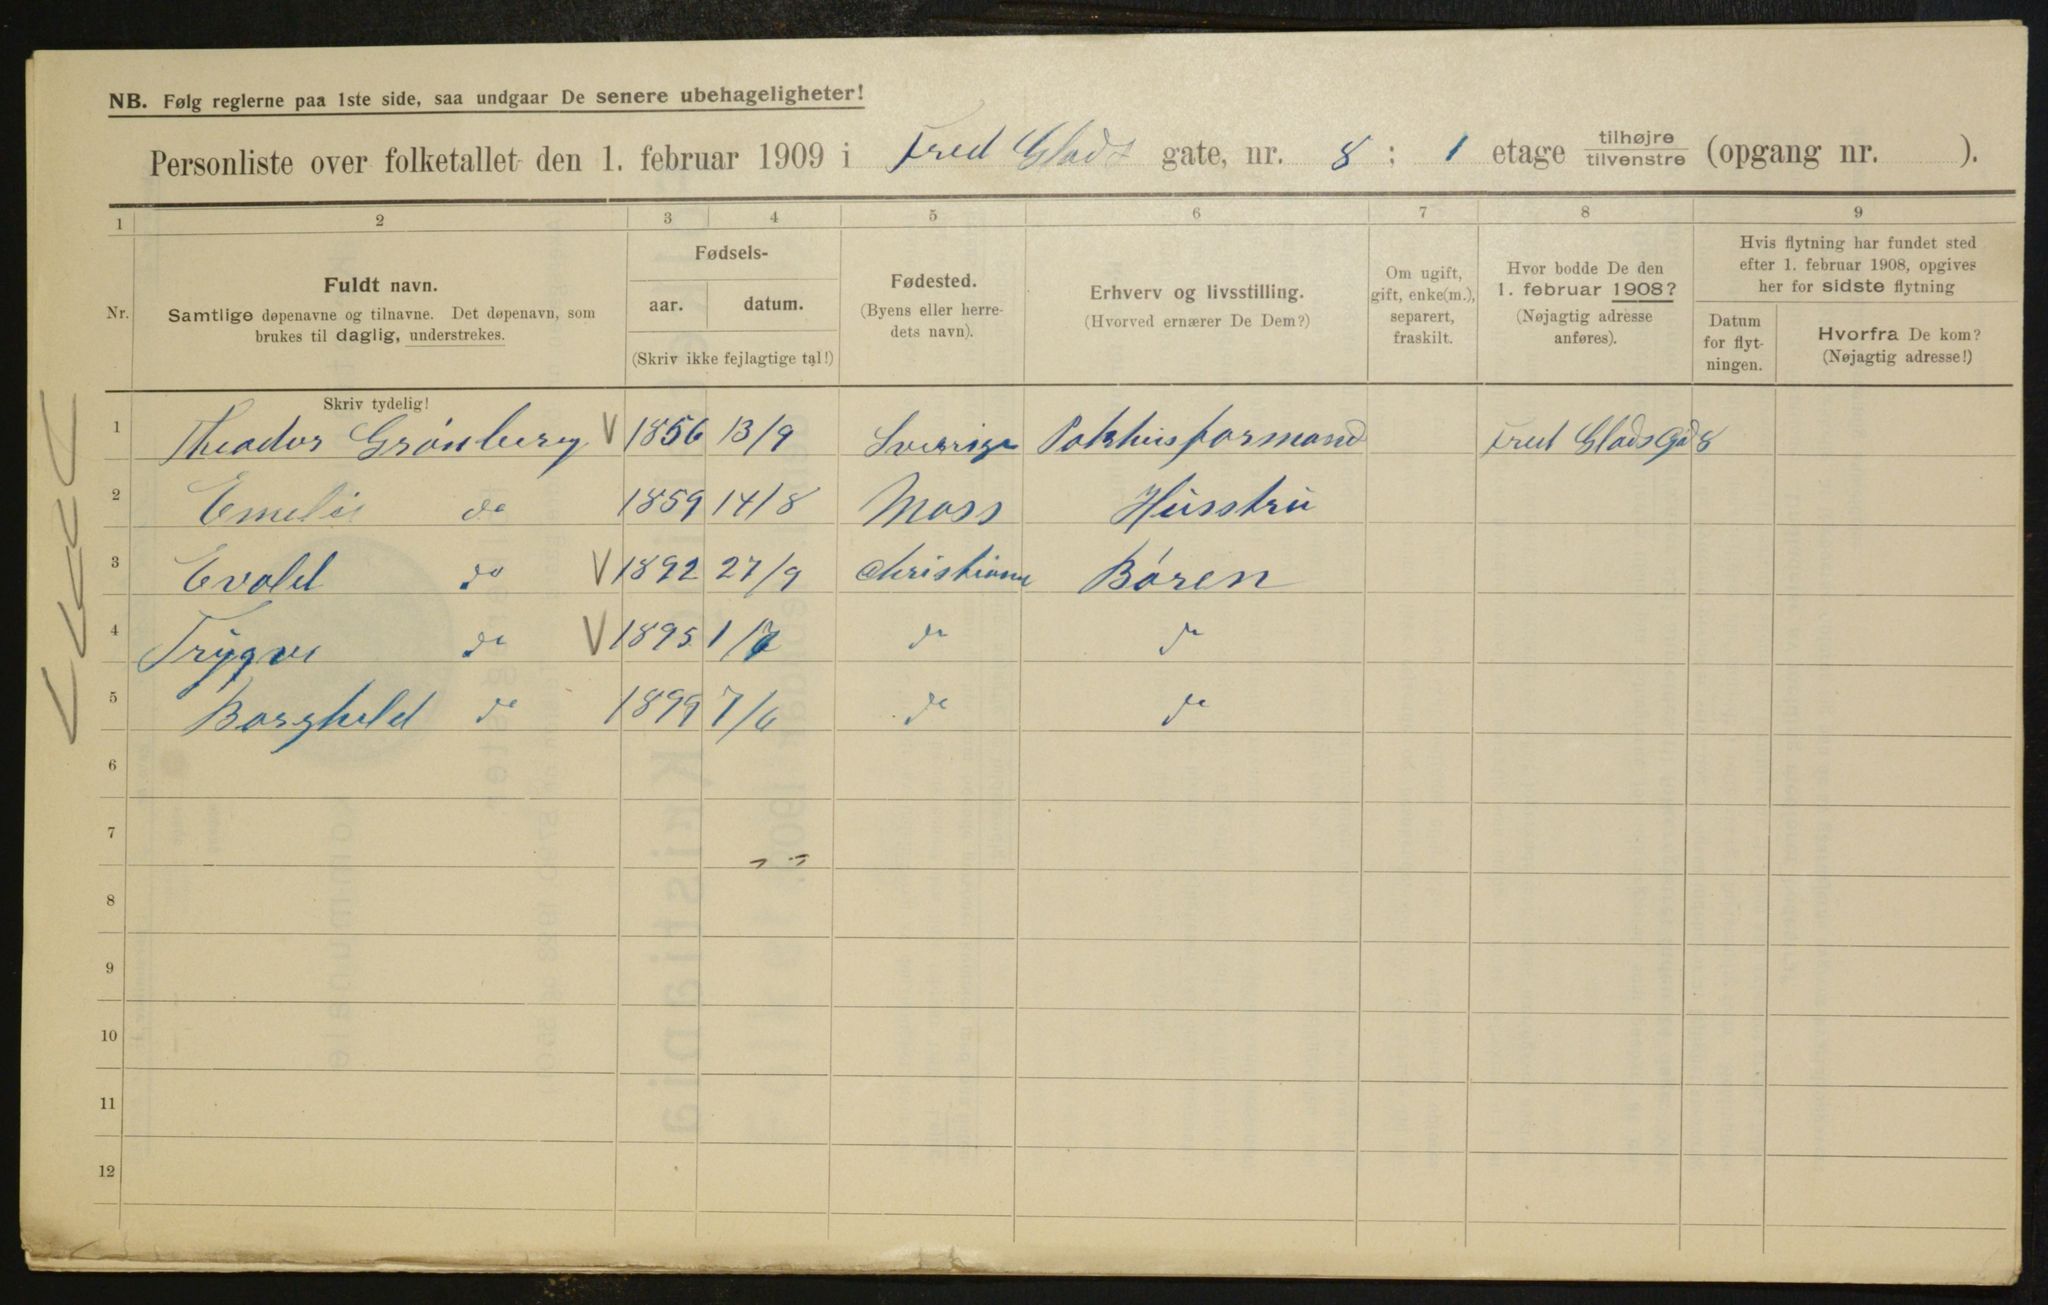 NB. Følg reglerne paa 1ste side, saa undgaar De senere ubehageligheter!
Personliste over folketallet den 1. februar 1909 i Fred Glads gate, nr. 8 : 1 etage tilhøjre/tilvenstre (opgang nr. ).
1 2 3 4 5 6 7 8 9
Nr.
Fuldt navn.
Samtlige døpenavne og tilnavne. Det døpenavn, som
brukes til daglig, understrekes.
Skriv tydelig!
Fødsels-
aar. datum.
(Skriv ikke fejlagtige tal!)
Fødested.
(Byens eller herre-
dets navn).
Erhverv og livsstilling.
(Hvorved ernærer De Dem?)
Om ugift,
gift, enke(m.),
separert,
fraskilt.
Hvor bodde De den
1. februar 1908?
(Nøjagtig adresse
anføres).
Hvis flytning har fundet sted
efter 1. februar 1908, opgives
her for sidste flytning
Datum
for flyt-
ningen.
Hvorfra De kom?
(Nøjagtig adresse!)
1 Theodor Grønberg V 1856 13/9 Sverige Pakhusformand Fred Glads Gd 8
2 Emelie do 1859 14/8 Moss Husstru
3 Evald do V 1892 27/9 Christiania Børen
4 Trygve do V 1895 1/7 do do
5 Borghild do 1899 7/6 do do
6
7
8
9
10
11
12